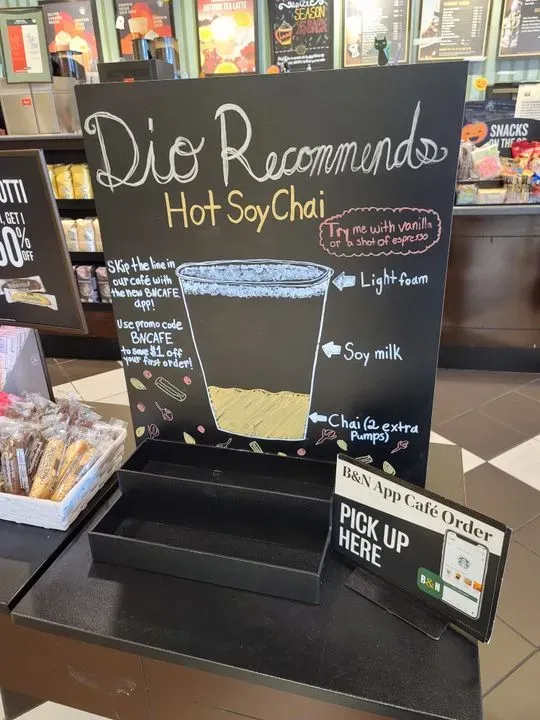 Dio Recommends
Hot Soy Chai
Try me with vanilla
or a shot of espresso
Skip the line in
our café with
the new BNCAFE
app!
Use promo code
BNCAFE
to save $1 off
your first order!
Light foam
Soy milk
Chai (2 extra
Pumps)
B&N App Café Order
PICK UP
HERE
B&N
OTTI
GET 1
50%
OFF
AUTUMN TEA LATTE
SEASON
SNACKS
ON THE GO